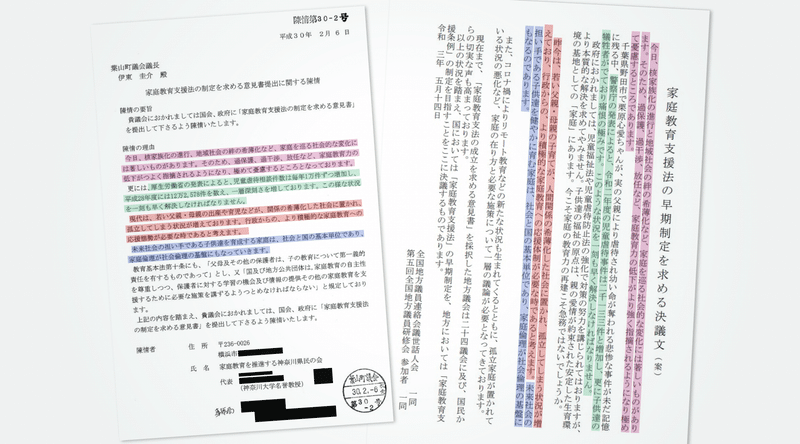 陳情第30-2号
平成30年 2月 6日
葉山町議会議長
伊東 圭介 殿
家庭教育支援法の制定を求める意見書提出に関する陳情
陳情の要旨
貴議会におかれましては国会、政府に「家庭教育支援法の制定を求める意見書」
を提出して下さるよう陳情いたします。
陳情の理由
今日、核家族化の進行、地域社会の絆の希薄化など、家庭を巡る社会的な変化に
は著しいものがあります。そのため、過保護、過干渉、放任など、家庭教育力の
低下がつよく指摘されるようになり、極めて憂慮するところとなっております。
更には、厚生労働省の発表によると、児童虐待相談件数は毎年1万件ずつ増加し、
平成28年度には12万2,578件を数え、一層深刻さを増しております。この様な状況
を一刻も早く解決しなければなりません。
現代は、若い父親・母親の出産や育児などが、関係の希薄化した社会に置かれ、
孤立してしまう状況が増えております。行政からの、より積極的な家庭教育への
応援態勢が必要な時であると考えます。
未来社会の担い手である子供達を育成する家庭は、社会と国の基本単位であり、
家庭倫理が社会倫理の基盤にもなっていきます。
教育基本法第十条にも、「父母及その他の保護者は、子の教育について第一義的
責任を有するものであって」とし、又「国及び地方公共団体は、家庭教育の自主性
を尊重しつつ、保護者に対する学習の機会及び情報の提供その他の家庭教育を支
援するために必要な施策を講ずるようつとめなければならない」と規定しており
ます。
上記の内容を踏まえ、貴議会におかれましては、国会、政府に「家庭教育支援法
の制定を求める意見書」を提出して下さるよう陳情いたします。
陳情者
住 所 〒236-0026
横浜市
氏 名 家庭教育を推進する神奈川県民の会
代表
(神奈川大学名誉教授)
葉山町議会
30.2.-6
第30
-2号
家庭教育支援法の早期制定を求める決議文(案)
今日、核家族化の進行と地域社会の絆の希薄化など、家庭を巡る社会的な変化には著しいものがあり
ます。そのため、過保護、過干渉、放任など、家庭教育力の低下がより強く指摘されるようになり極め
て憂慮するところであります。
千葉県野田市で栗原心愛ちゃんが、実の父親により虐待され幼い命が奪われる悲惨な事件が未だ記憶
に残る中、警察庁の発表によると、令和二年度の児童虐待事件は二千一三三件と増加し、更に子供達の
犠牲者がでており痛恨の極みです。このような状況を一刻も早く解決しなければなりません。
政府におかれましては、児童福祉法や児童虐待防止法の強化で対策の努力を講じられてはおりますが、
より本質的な解決を求めてやみません。子供達の福祉の原点は、親の愛情が約束された安定した生育環
境の基地としての「家庭」にあります。今こそ家庭の教育力の再建こそ急務ではないでしょうか。
昨今は、若い父親・母親の子育てが、人間関係の希薄化した社会に置かれ、孤立してしまう状況が増
えており、行政からの、より積極的な家庭教育への応援体制が必要な時であると考えます。未来社会の
担い手である子供達を健やかに育む家庭は、社会と国の基本単位であり、家庭倫理が社会倫理の基盤に
もなるのであります。
また、コロナ禍によりリモート教育などの新たな状況も生まれてくるとともに、孤立家庭が置かれて
いる状況の悪化など、家庭の在り方と必要な施策について一層の議論が必要となってきております。
現在まで、「家庭教育支援法」の成立を求める意見書」を採択した地方議会は二十四議会に及び、国民か
らの切実な声も高まっております。
以上の状況を踏まえ、国においては「家庭教育支援法」の早期制定を、地方においては「家庭教育支
援条例」の制定を目指すことをここに決議するものであります。
令和 三年 五月十四日
全国地方議員連絡会議世話人会 一同
第五回全国地方議員研修会 参加者 一同